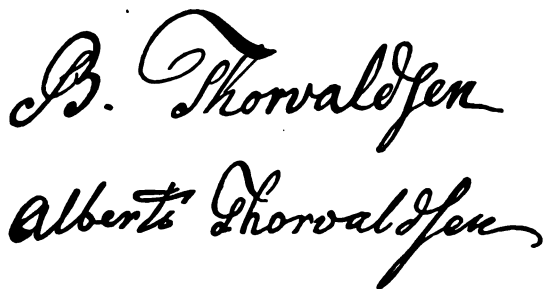 B. Thorvaldsen
Alberto Thorvaldsen